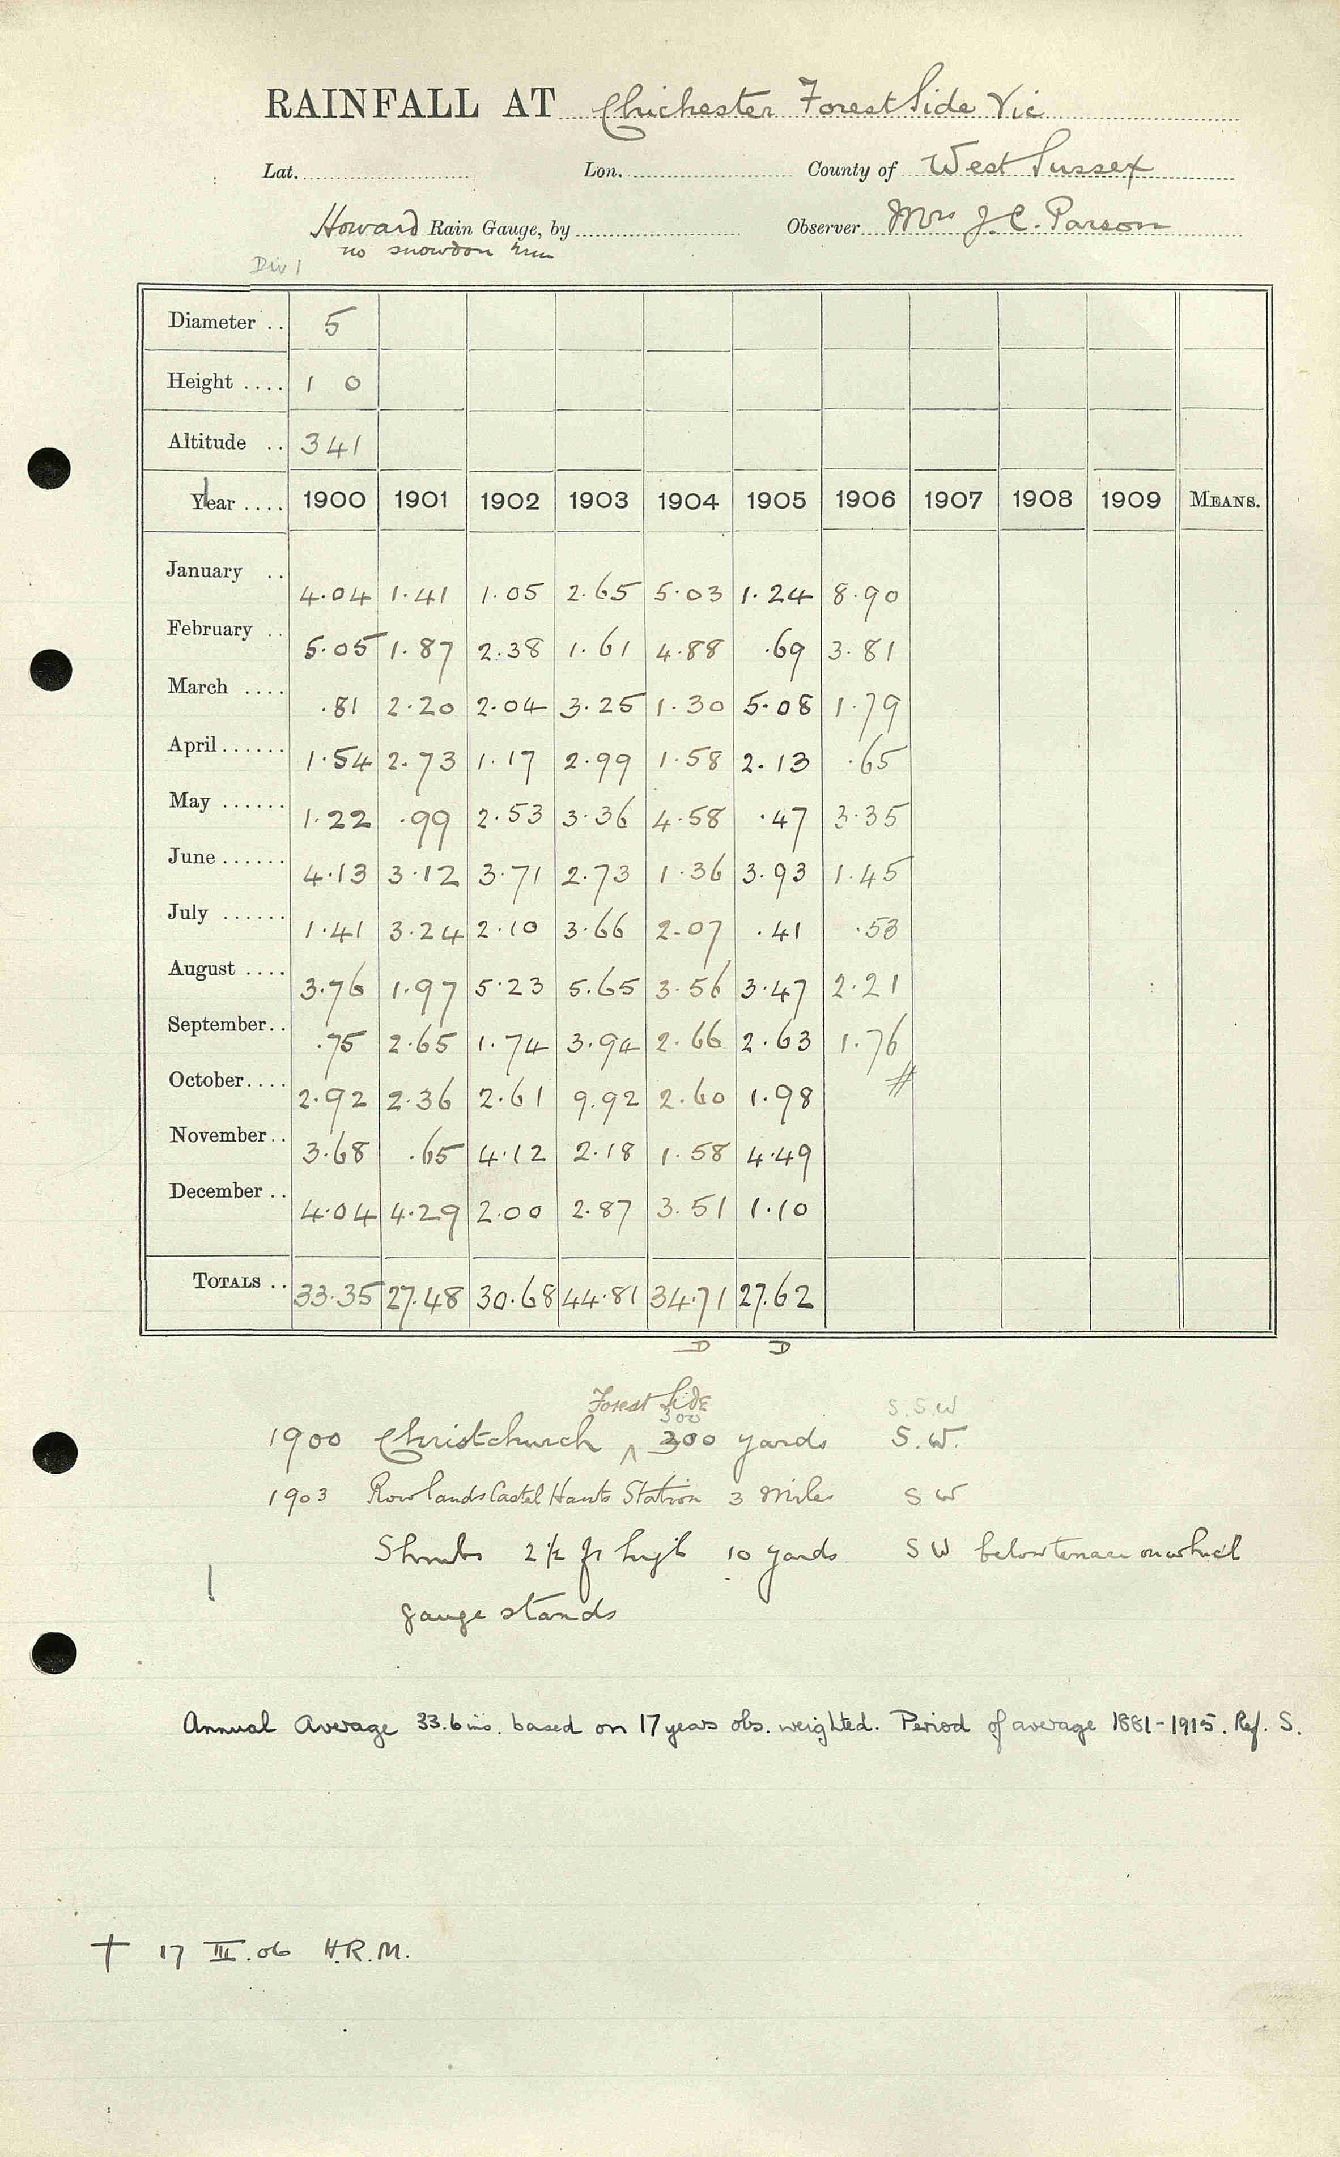 RAINFALL AT Chichester Forest Side Vic
Lat. Lon. County of West Sussex
Howard Rain Gauge, by Observer Mrs J. C. Parson
no snowdon rim
Div 1
Diameter .. 5
Height .... 1 0
Altitude .. 341
Year .... 1900 1901 1902 1903 1904 1905 1906 1907 1908 1909 MEANS.
January .. 4.04 1.41 1.05 2.65 5.03 1.24 8.90
February .. 5.05 1.87 2.38 1.61 4.88 .69 3.81
March .... .81 2.20 2.04 3.25 1.30 5.08 1.79
April...... 1.54 2.73 1.17 2.99 1.58 2.13 .65
May ...... 1.22 .99 2.53 3.36 4.58 .47 3.35
June...... 4.13 3.12 3.71 2.73 1.36 3.93 1.45
July ...... 1.41 3.24 2.10 3.66 2.07 .41 .53
August .... 3.76 1.97 5.23 5.65 3.56 3.47 2.21
September.. .75 2.65 1.74 3.94 2.66 2.63 1.76
October.... 2.92 2.36 2.61 9.92 2.60 1.98 #
November.. 3.68 .65 4.12 2.18 1.58 4.49
December .. 4.04 4.29 2.00 2.87 3.51 1.10
TOTALS .. 33.35 27.48 30.68 44.81 34.71 27.62
D D
Forest Side
300 S.S.W
1900 Christchurch ^ 300 yards S.W.
1903 Rowlands Castel Hants Station 3 Miles SW
Shrubs 2½ ft high 10 yards SW below terrace on which
gauge stands
Annual Average 33.6 ins. based on 17 years obs. weighted. Period of average 1881-1915. Ref. S.
† 17 III.06 H.R.M.